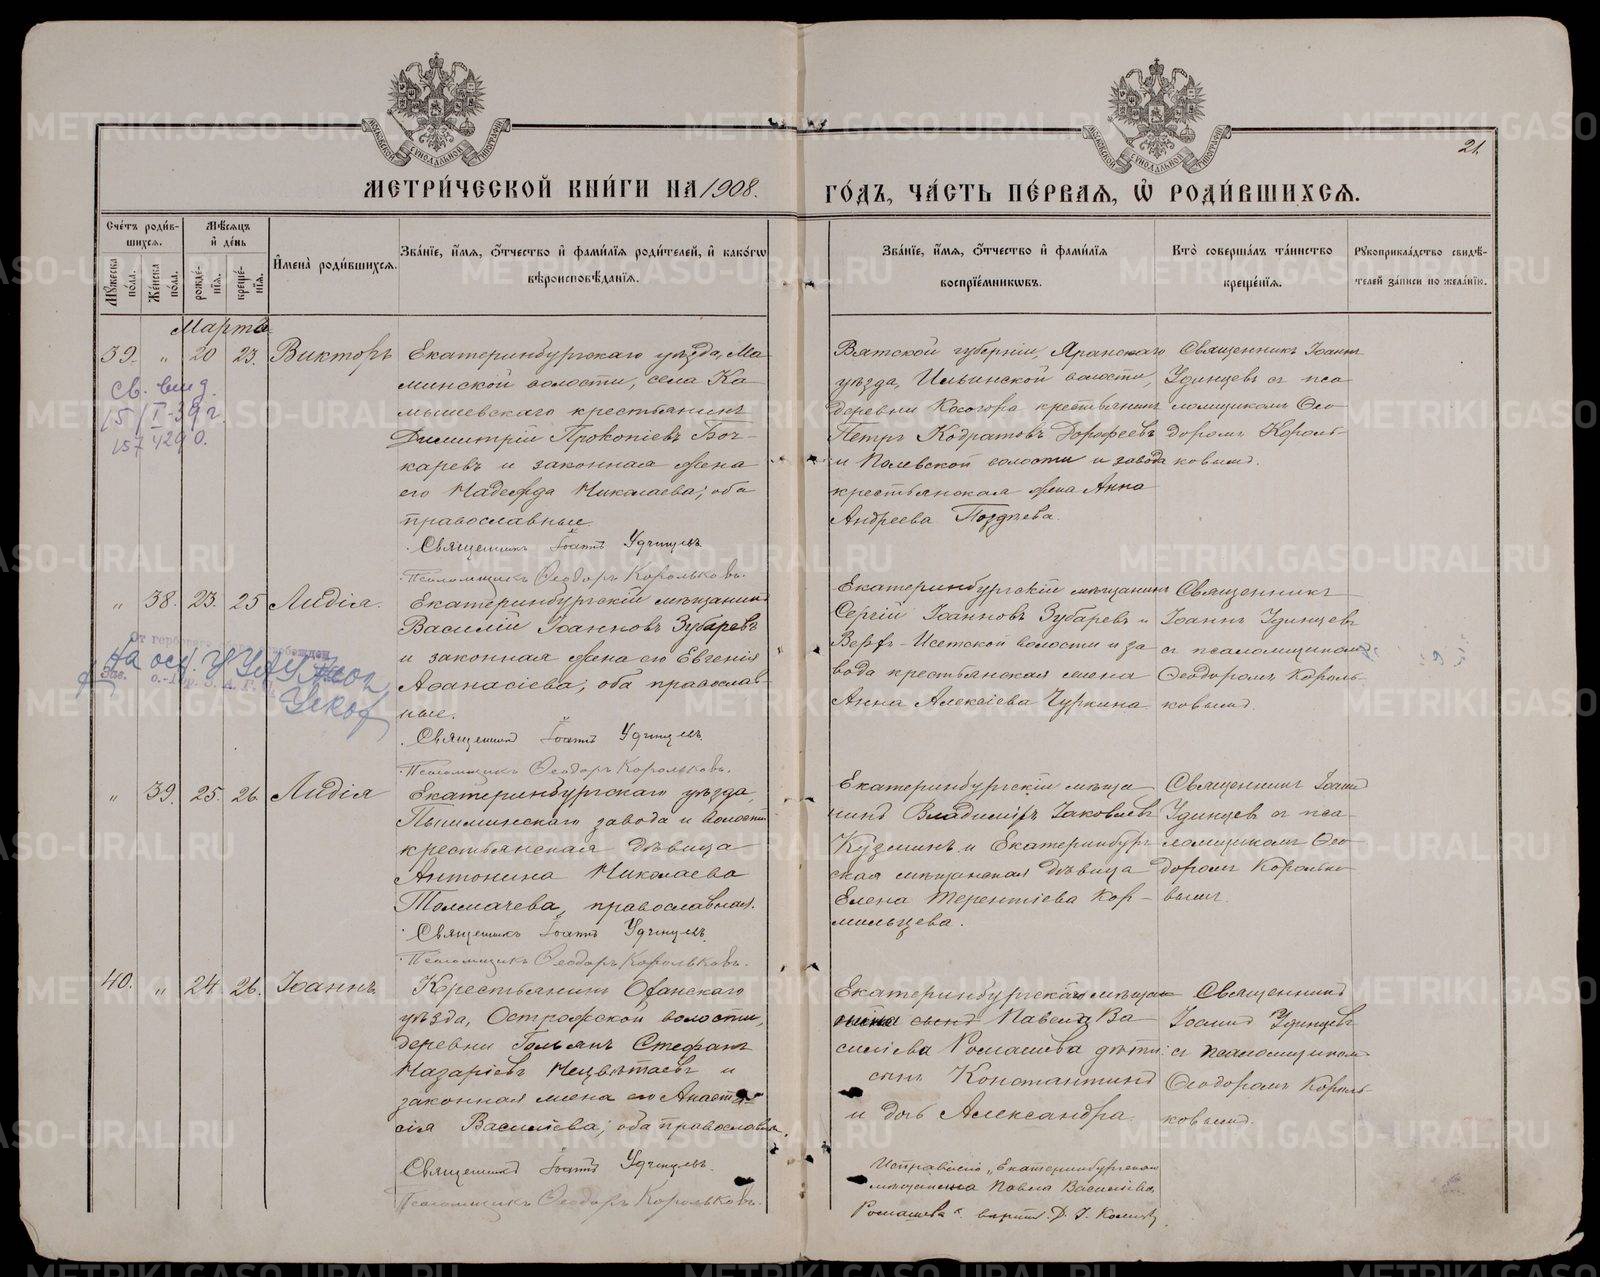 МЕТРИ́ЧЕСКОЙ КНИ́ГИ НА 1908.
ГО́ДЪ, ЧА́СТЬ ПЕ́РВАЯ, Ѽ РОДИ́ВШИХСЯ.
21
Сче́тъ роди́вшихся.
Мꙋ́жеска по́ла.
Же́нска по́ла.
Мѣ́сяцъ и҆ де́нь
рожде́нїѧ.
креще́нїѧ.
И҆мена̀ роди́вшихсѧ.
Зва́нїе, и҆́мѧ, ѻ҆́тчество и҆ фами́лїѧ роди́телей, и҆ како́гѡ
вѣроисповѣ́данїѧ.
Зва́нїе, и҆́мѧ, ѻ҆́тчество и҆ фами́лїѧ
воспрїе́мникѡвъ.
Кто̀ соверша́лъ та́инство
креще́нїѧ.
Рꙋкоприкла́дство свидѣ́-
телей за́писи по жела́нїю.
Марта
39. „ 20 23. Викторъ
Екатеринбургскаго уѣзда, Ма-
минской волости, села Ка-
мышевскаго крестьянинъ
Димитрій Прокопіевъ Боч-
каревъ и законная жена
его Надежда Николаева; оба
православные.
Священникъ Іоаннъ Удинцевъ
Псаломщикъ Ѳеодоръ Корольковъ.
Вятской губерніи, Яранскаго
уѣзда, Ильинской волости,
деревни Косогора крестьянинъ
Петръ Кодратовъ Дорофеевъ
и Полевской волости и завода
крестьянская жена Анна
Андреева Позднева.
Священникъ Іоаннъ
Удинцевъ съ пса-
ломщикомъ Ѳео-
доромъ Король-
ковымъ.
Св. выд.
15/I-39 г.
„ 38. 23. 25 Лидія.
Екатеринбургскій мѣщанинъ
Василій Іоанновъ Зубаревъ
и законная жена его Евгенія
Аѳанасіева; оба православ-
ные.
Священникъ Іоаннъ Удинцевъ.
Псаломщикъ Ѳеодоръ Корольковъ.
Екатеринбургскій мѣщанинъ
Сергій Іоанновъ Зубаревъ и
Верхъ-Исетской волости и за-
вода крестьянская жена
Анна Алексіева Чуркина
Священникъ
Іоаннъ Удинцевъ
съ псаломщикомъ
Ѳеодоромъ Король-
ковымъ.
„ 39. 25. 26. Лидія
Екатеринбургскаго уѣзда,
Пышминскаго завода и волости
крестьянская дѣвица
Антонина Николаева
Толмачева, православная.
Священникъ Іоаннъ Удинцевъ
Псаломщикъ Ѳеодоръ Корольковъ.
Екатеринбургскій мѣща-
нинъ Владиміръ Іаковлевъ
Кузминъ и Екатеринбург-
ская мѣщанская дѣвица
Елена Терентіева Кор-
мильцева.
Священникъ Іоаннъ
Удинцевъ съ пса-
ломщикомъ Ѳео-
доромъ Королько-
вымъ.
40. „ 24. 26. Іоаннъ.
Крестьянинъ Оханскаго
уѣзда, Острожской волости,
деревни Гольянъ Стефанъ
Назаріевъ Нецвѣтаевъ и
законная жена его Анаста-
сія Василіева; оба православн.
Священникъ Іоаннъ Удинцевъ.
Псаломщикъ Ѳеодоръ Корольковъ.
Екатеринбургскаго мѣща-
Павела Ва-
силіева Ромашева дѣти:
сынъ Константинъ
и дочь Александра.
Священникъ
Іоаннъ Удинцевъ
съ псаломщикомъ
Ѳеодоромъ Король-
ковымъ.
Исправлено „Екатеринбургскаго
мѣщанина Павла Василіева
Ромашева“